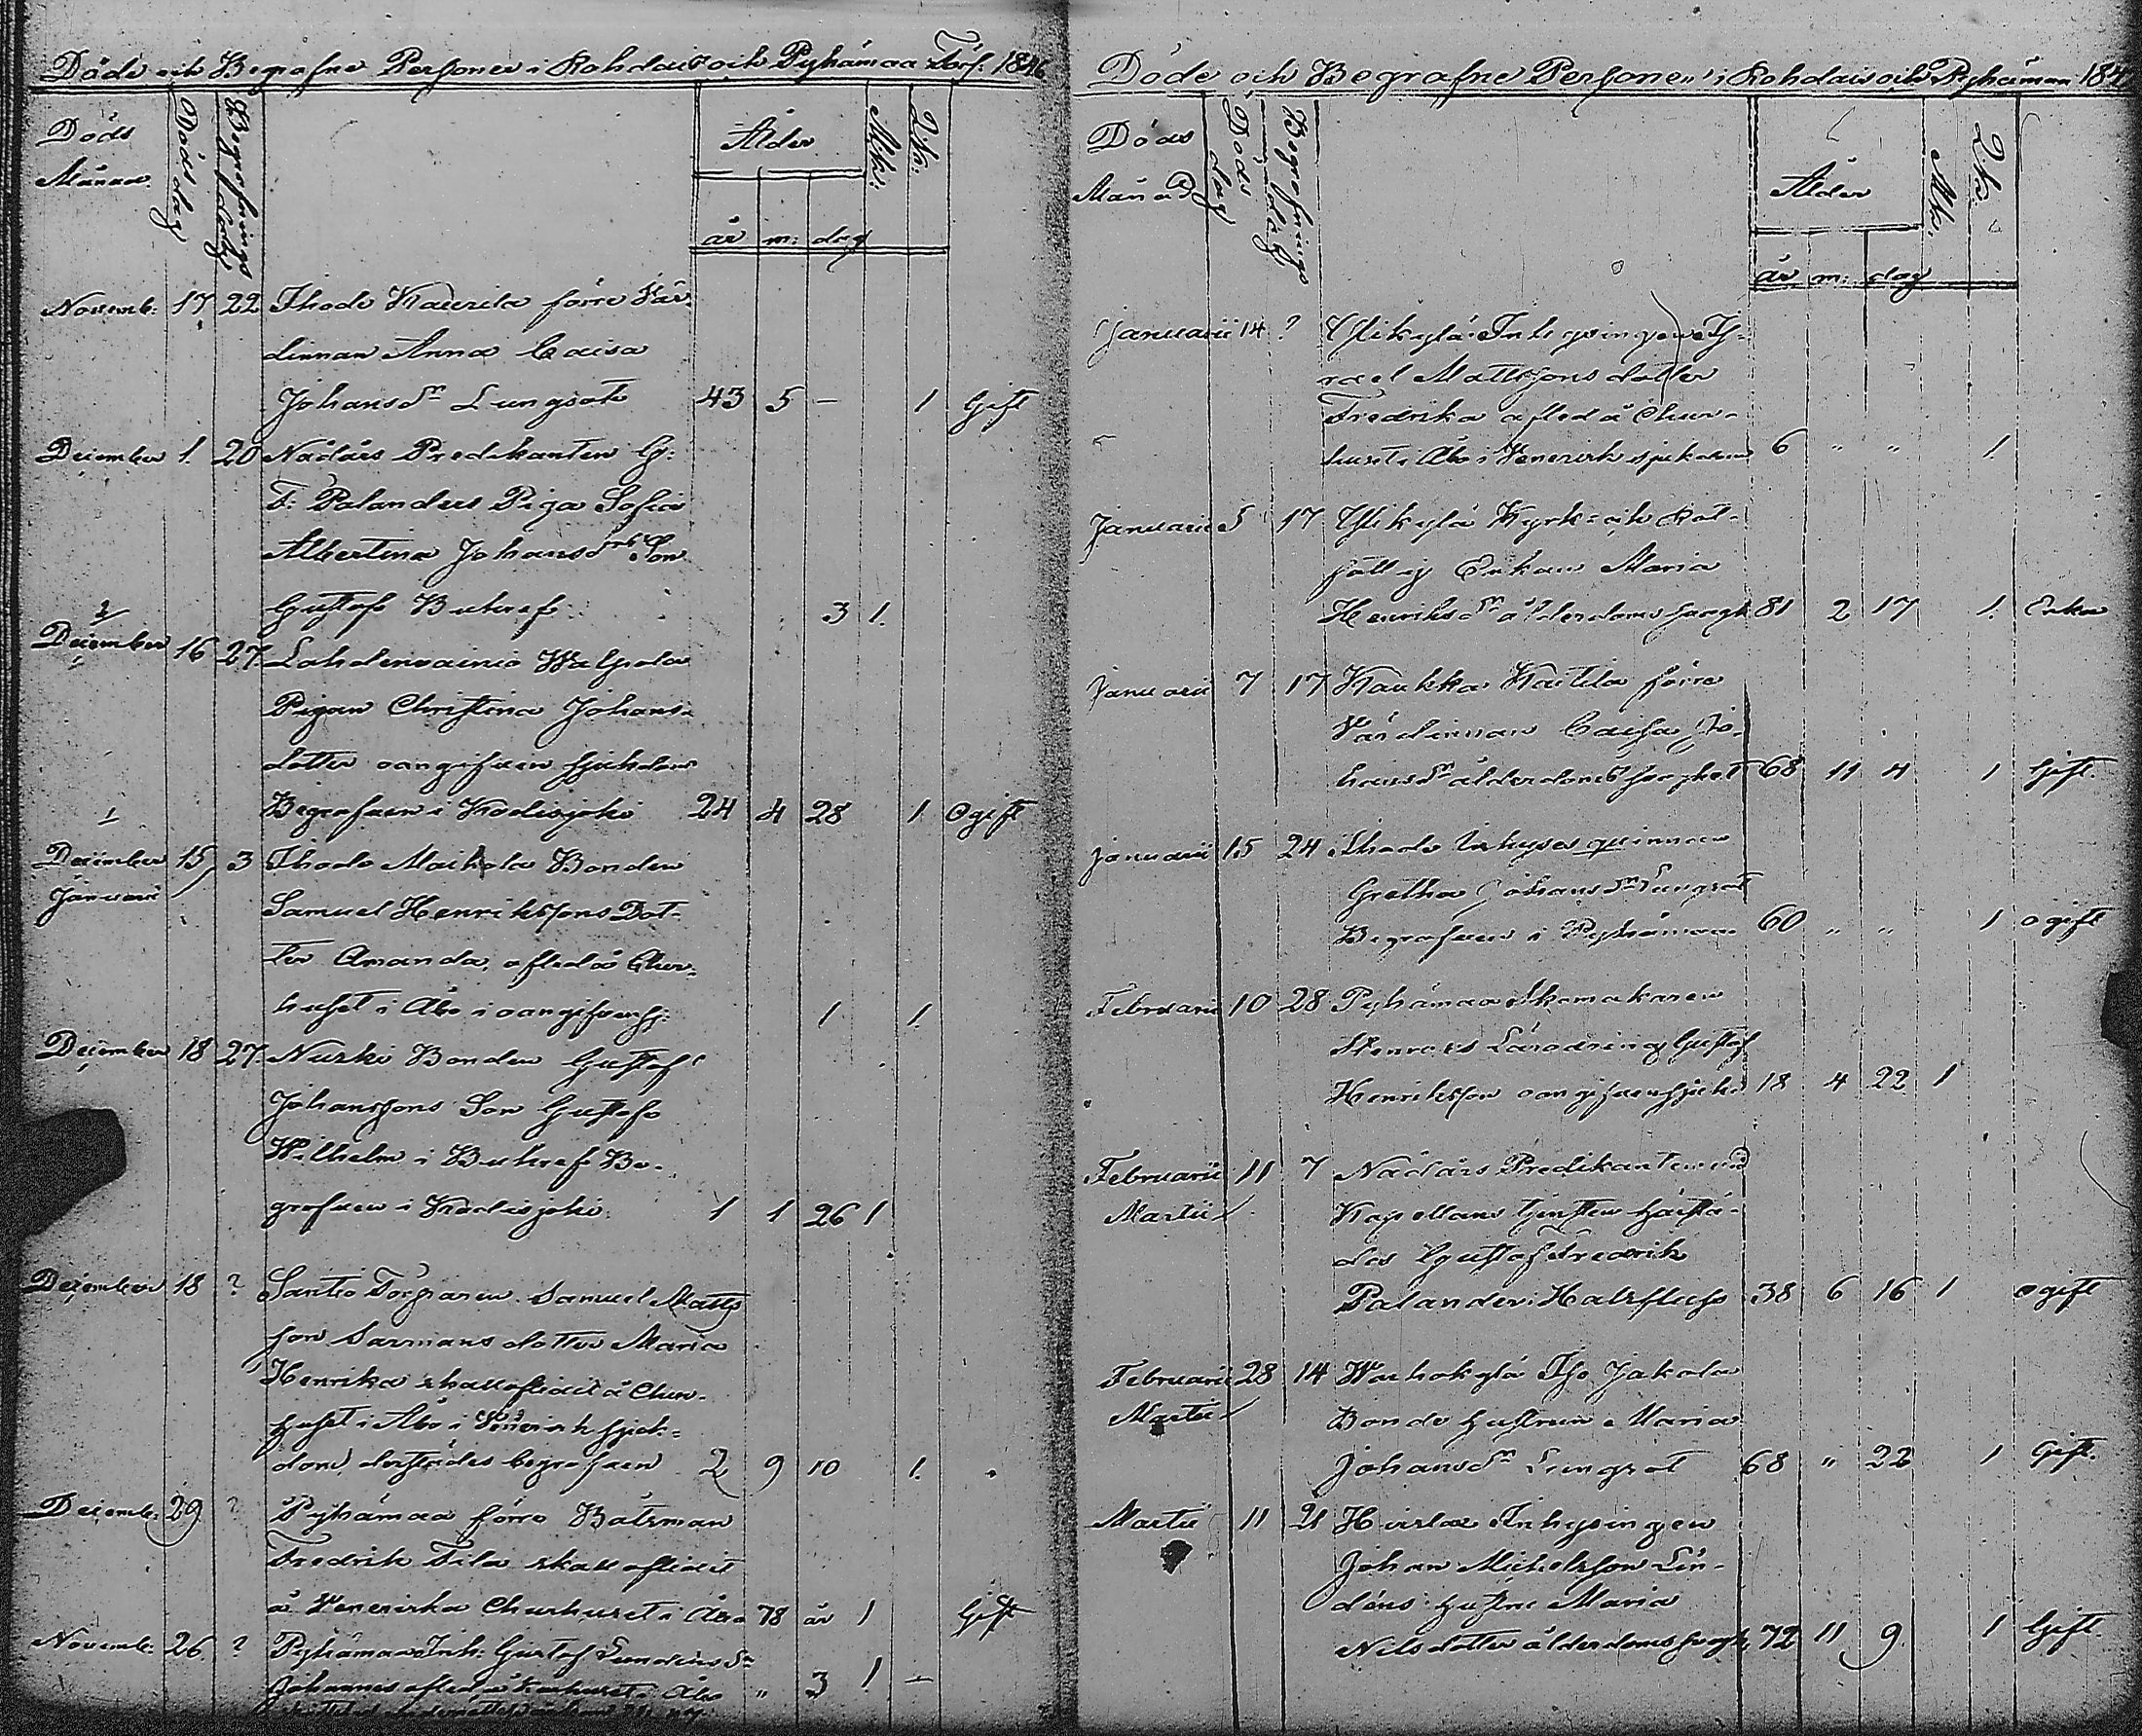 Döde och Begrafne Personer i Rohdais och Pyhämaa Förs. 1846
Döds Månad.
Döds dag
Begrafnings dag
Ålder
år m: dag
Mk:
Qk:
Novemb: 17 22 Ihode Kaurila förre Vär-
dinnan Anna Caisa
Johansdr Lungrot 43 5 — 1 Gift
December 1. 20 Nådårs Predikanten G:
F: Palanders Piga Sofia
Albertina Johansdrs Son
Gustaf Buhref: 3 1.
December 16 27. Lahdenvainio Walpola
Pigan Christina Johans-
dotter oangifven sjukdom
Begrafven i Kodisjoki 24 4 28 1 Ogift
December 15 3 Ihode Maikola Bonden
Januari
Samuel Henrikssons Dot-
ter Amanda, afled å Chur-
huset i Åbo i oangifven sj: 1 1.
December 18 27. Nurko Bonden Gustaf
Johanssons Son Gustaf
Wilhelm i Buhref Be-
grafven i Kodisjoki. 1 1 26 1
December 18 ? Santio Torparen Samuel Matts
son Sarmans dotter Maria
Henrika skall aflidit å Chur-
huset i Åbo i Venerisk sjuk-
dom, derstädes begrafven 2 9 10 1.
Decemb: 29 ? Pyhämaa förre Båtsman
Fredrik Fila skall aflidit
å Veneriska Churhuset i Åbo 78 år 1 Gift
Novemb: 26 ? Pyhämaa Inh: Gustaf Lundens Sn
Johannes afled å Kurhuset i Åbo " 3 1 —
Döde och Begrafne Personer i Rohdais och Pyhämaa 184
Döds Månad
Döds dag
Begrafnings dag
Ålder
år m: dag
Mk:
Qk:
Januarii 14 ? Ylikylä Inhysingen Is-
rael Mattssons dotter
Fredrika afled å Chur-
huset i Åbo i Venerisk sjukdom 6 " " 1.
Januarii 5 17 Ylikylä Kyrk- och Rot-
fattig Enkan Maria
Henriksdr ålderdoms svagh 81 2 17 1. Enka
Januarii 7 17 Kaukka Kaitila förre
Värdinnan Caisa Jo-
hansdr ålderdoms svaghet 68 11 4 1 Gift.
Januarii 15 24 Ihode Inhyses qvinnan
Gretha Johansdr Lungrot
Begrafven i Pyhämaa 60 " " 1 ogift
Februarii 10 28 Pyhämaa Skomakaren
Stenroos Lärodräng Gustaf
Henriksson oangifven sjukd 18 4 22 1
Februarii 11 7 Nådårs Predikanten vid
Martii
Kapellans tjensten härstä-
des Gustaf Fredrik
Palander i Halsfluss 38 6 16 1 ogift
Februarii 28 14 Warhokylä Iso Jakola
Martii
Bonde hustrun Maria
Johansdr Lungrot 68 " 22 1 Gift.
Martii 11 21 Hirslax Inhysingen
Johan Michelsson Lin-
déns hustru Maria
Nilsdotter ålderdoms svagh. 72 11 9 1 Gift.